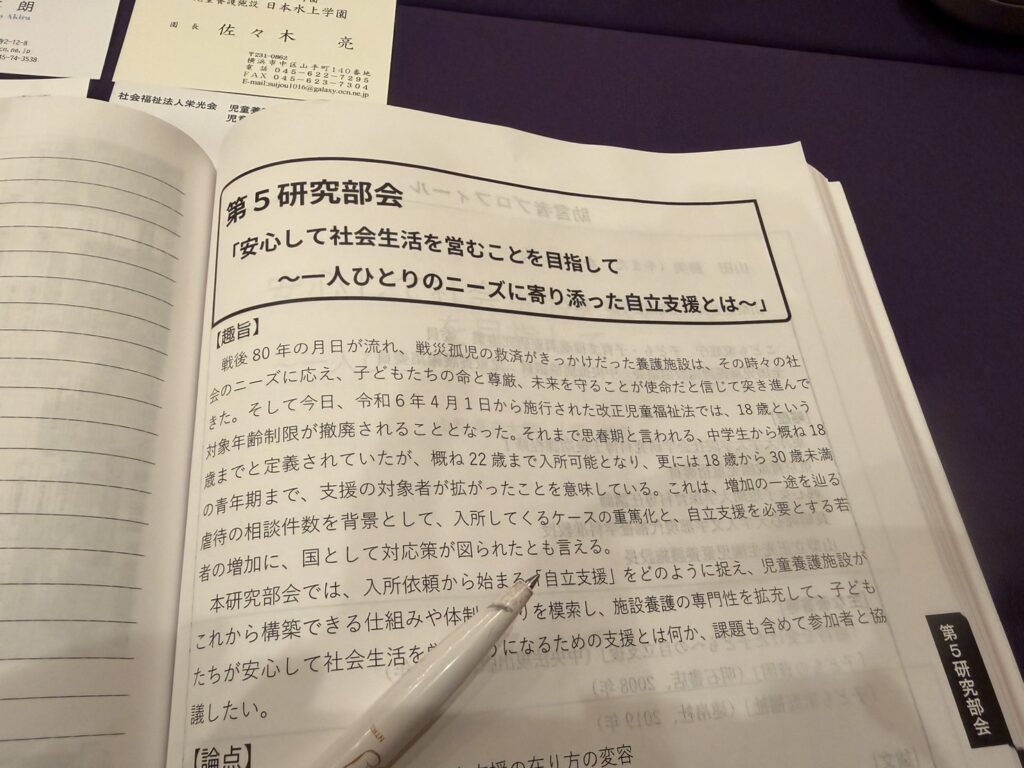 朗
Akira
92-12-8
cn.ne.jp
45-74-3538
児童養護施設 日本水上学園
園長 佐々木 亮
〒231-0862
横浜市中区山手町140番地
電話 045-622-7295
FAX 045-623-7304
E-mail:suijou1016@galaxy.ocn.ne.jp
社会福祉法人栄光会 児童養
第5研究部会
「安心して社会生活を営むことを目指して
～一人ひとりのニーズに寄り添った自立支援とは～」
【趣旨】
戦後80年の月日が流れ、戦災孤児の救済がきっかけだった養護施設は、その時々の社
会のニーズに応え、子どもたちの命と尊厳、未来を守ることが使命だと信じて突き進んで
きた。そして今日、令和6年4月1日から施行された改正児童福祉法では、18歳という
対象年齢制限が撤廃されることとなった。それまで思春期と言われる、中学生から概ね18
歳までと定義されていたが、概ね22歳まで入所可能となり、更には18歳から30歳未満
の青年期まで、支援の対象者が拡がったことを意味している。これは、増加の一途を辿る
虐待の相談件数を背景として、入所してくるケースの重篤化と、自立支援を必要とする若
者の増加に、国として対応策が図られたとも言える。
本研究部会では、入所依頼から始まる「自立支援」をどのように捉え、児童養護施設が
これから構築できる仕組みや体制 りを模索し、施設養護の専門性を拡充して、子ども
たちが安心して社会生活を うになるための支援とは何か、課題も含めて参加者と協
議したい。
【論点】
支援の在り方の変容
第5研究部会